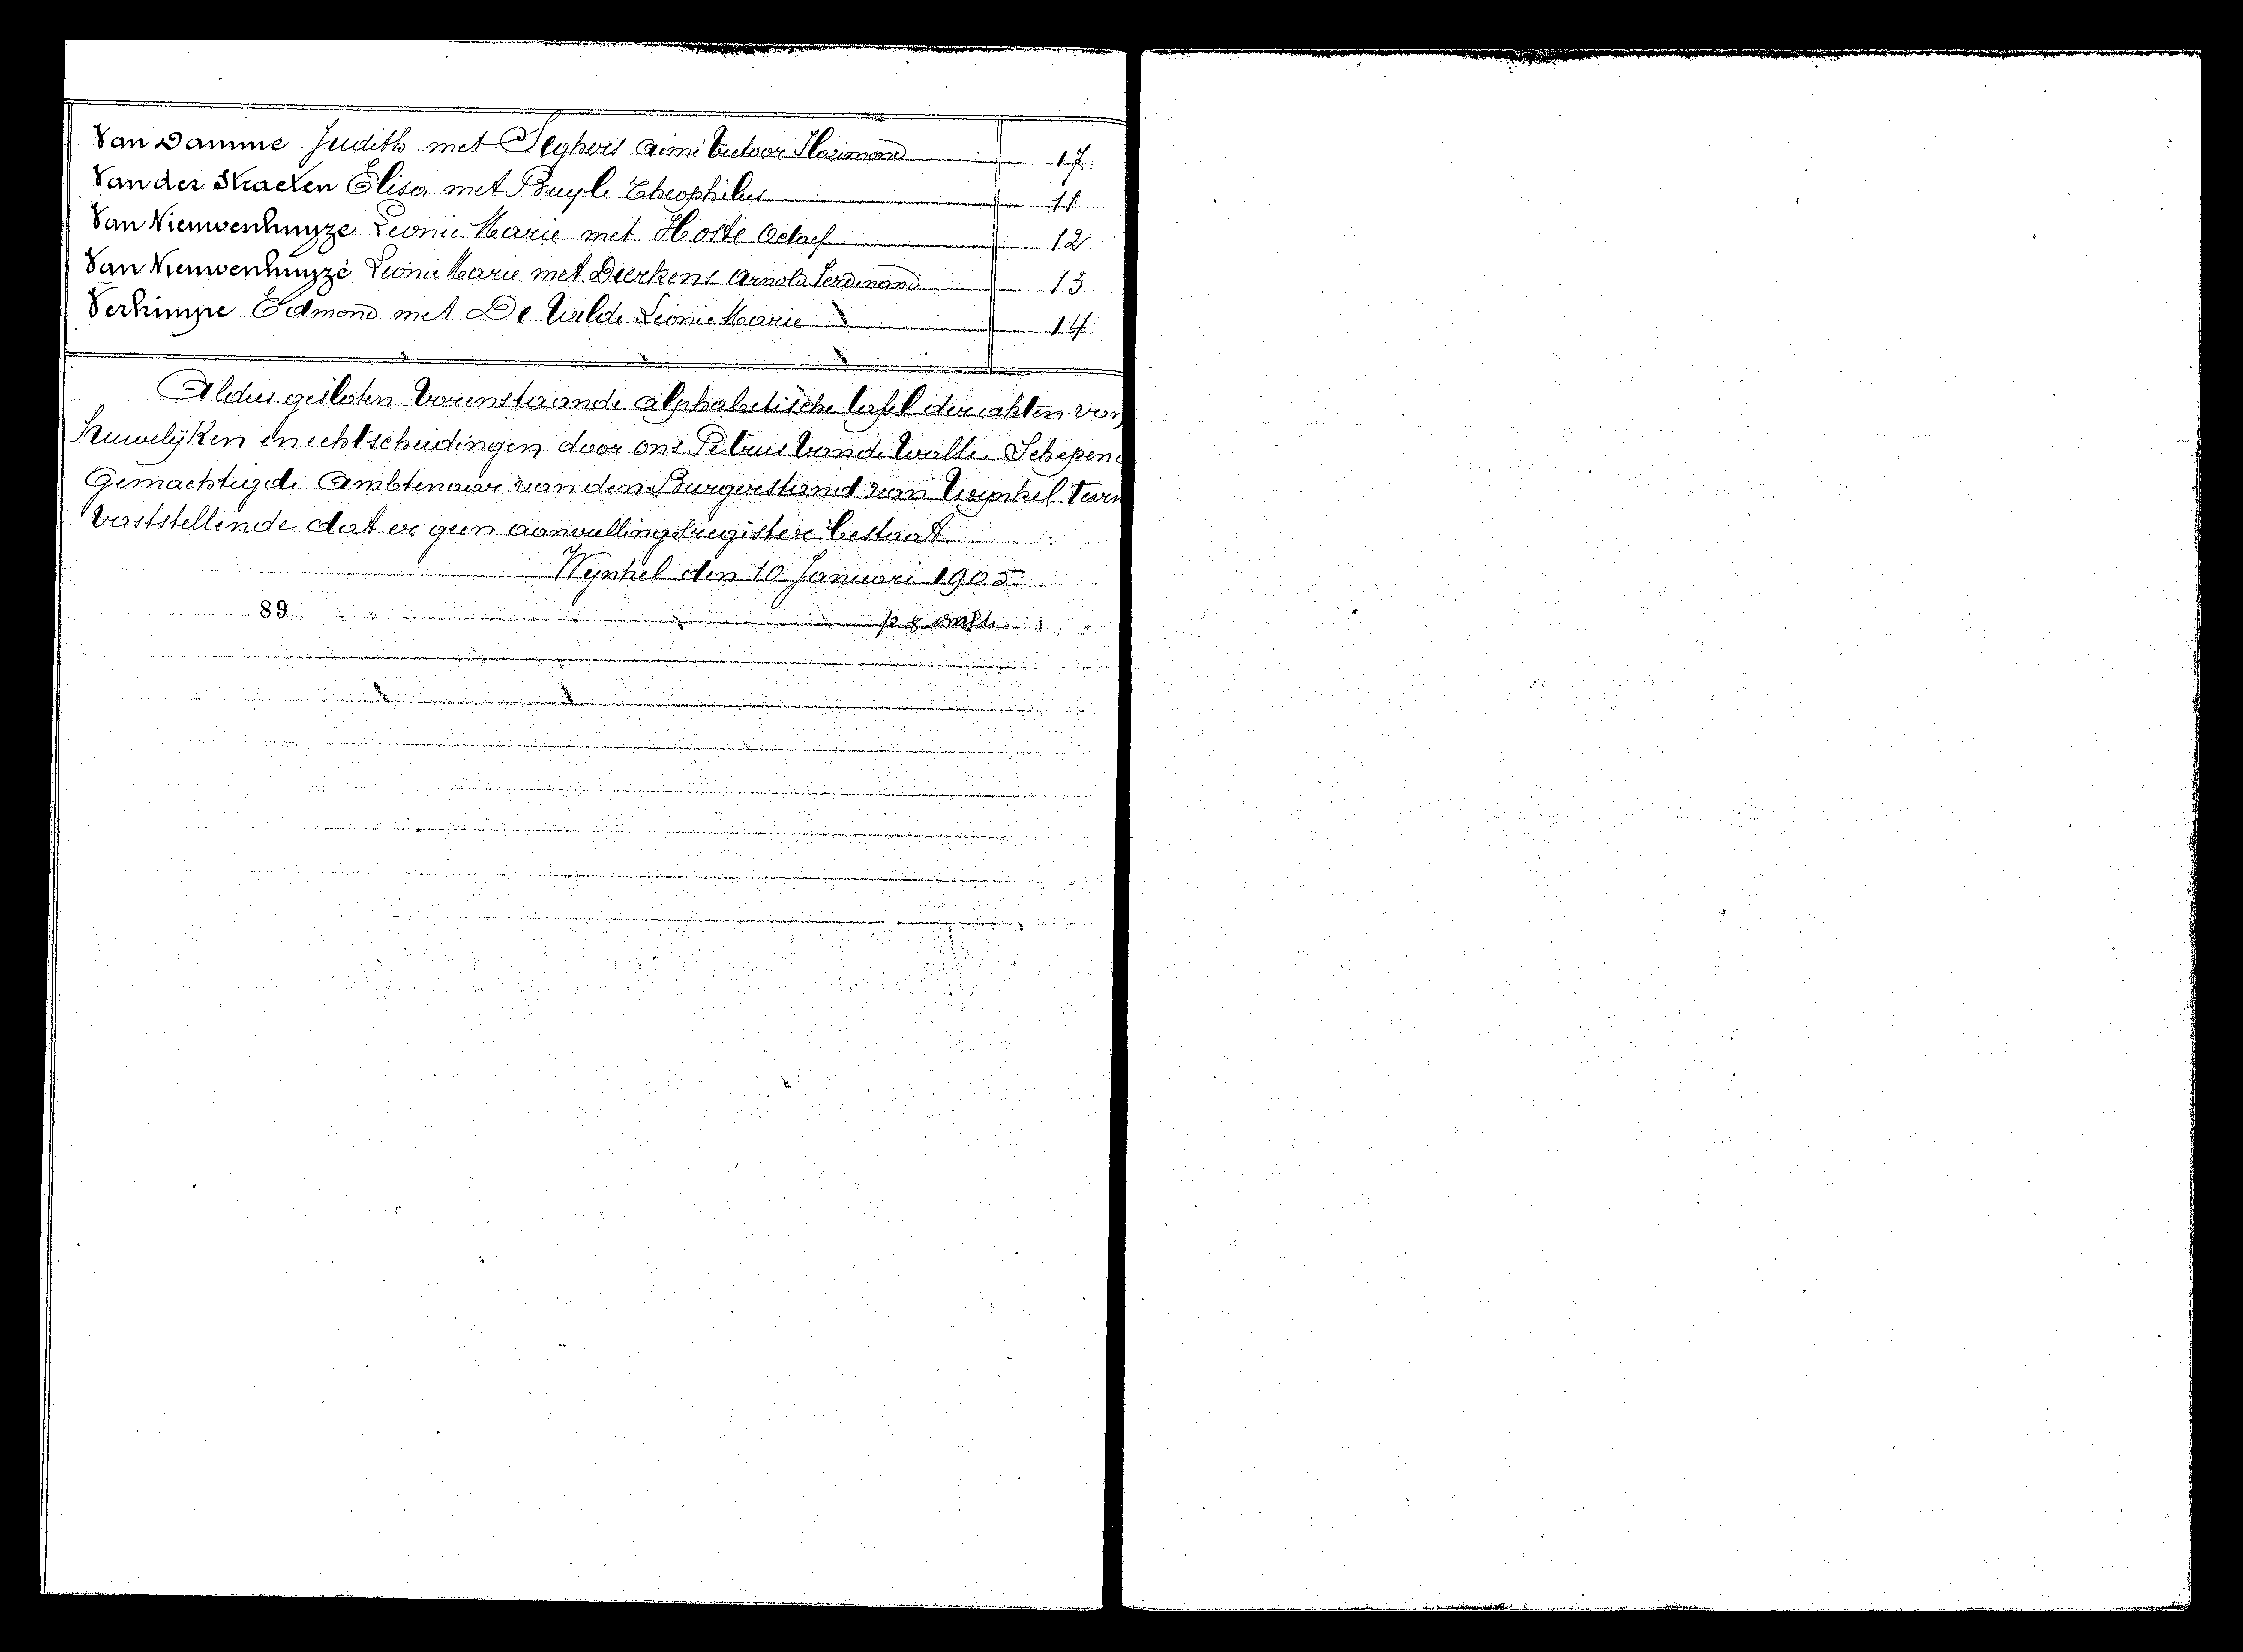 Van Damme Judith met Seghers Aimé Victoor Florimond 17
Van der Straeten Elisa met Buyle Theophilus 11
Van Nieuwenhuyze Leonie Marie met Hoste Octaef 12
Van Nieuwenhuyze Leonie Marie met Dierkens Arnold Ferdinand 13
Verkimpe Edmond met De Wilde Leonie Marie 14
Aldus gesloten vorenstaande alphabetische tafel der akten van
Huwelijken en echtscheidingen door ons Petrus Vande Walle Schepene
Gemachtigde Ambtenaar van den Burgerstand van Wynkel
Vaststellende dat er geen aanvullingsregister bestaat
Wynkel den 10 Januari 1905
89 Walle